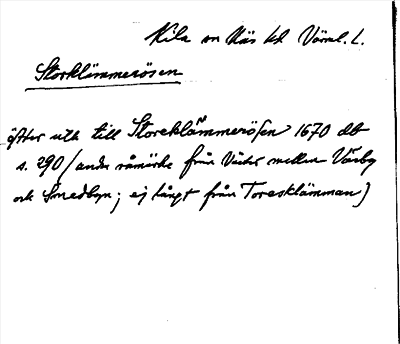 Kila sn Näs hd Värml. L.
Storklämmerösen
öfter utk till Storeklämmerösen 1670 db
s. 290 (andra råmärke från Väster mellan Vårby
och Smedbyn; ej långt från Toresklämman)